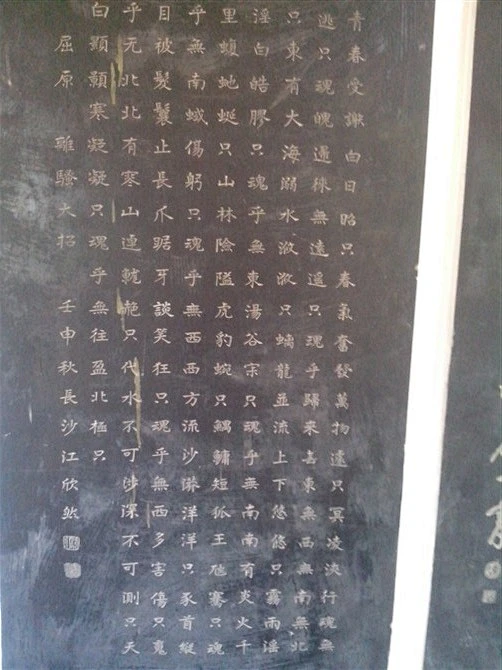 青春受謝白日昭只春氣奮發萬物遽只冥凌浹行魂無
逃只魂魄歸徠無遠遥只魂乎歸來無東無西無南無北
只東有大海溺水浟浟只螭龍並流上下悠悠只霧雨淫
淫白皓膠只魂乎無東湯谷宗只魂乎無南南有炎火千
里蝮虵蜒只山林險隘虎豹蜿只鰅鱅短狐王虺騫只魂
乎無南蜮傷躬只魂乎無西西方流沙漭洋洋只豕首縱
目被髮鬤止長爪踞牙談笑狂只魂乎無西多害傷只魂
乎无北北有寒山逴龍赩只代水不可涉深不可測只天
白顥顥寒凝凝只魂乎無往盈北極只
屈原 離騷大招 壬申秋長沙江欣然